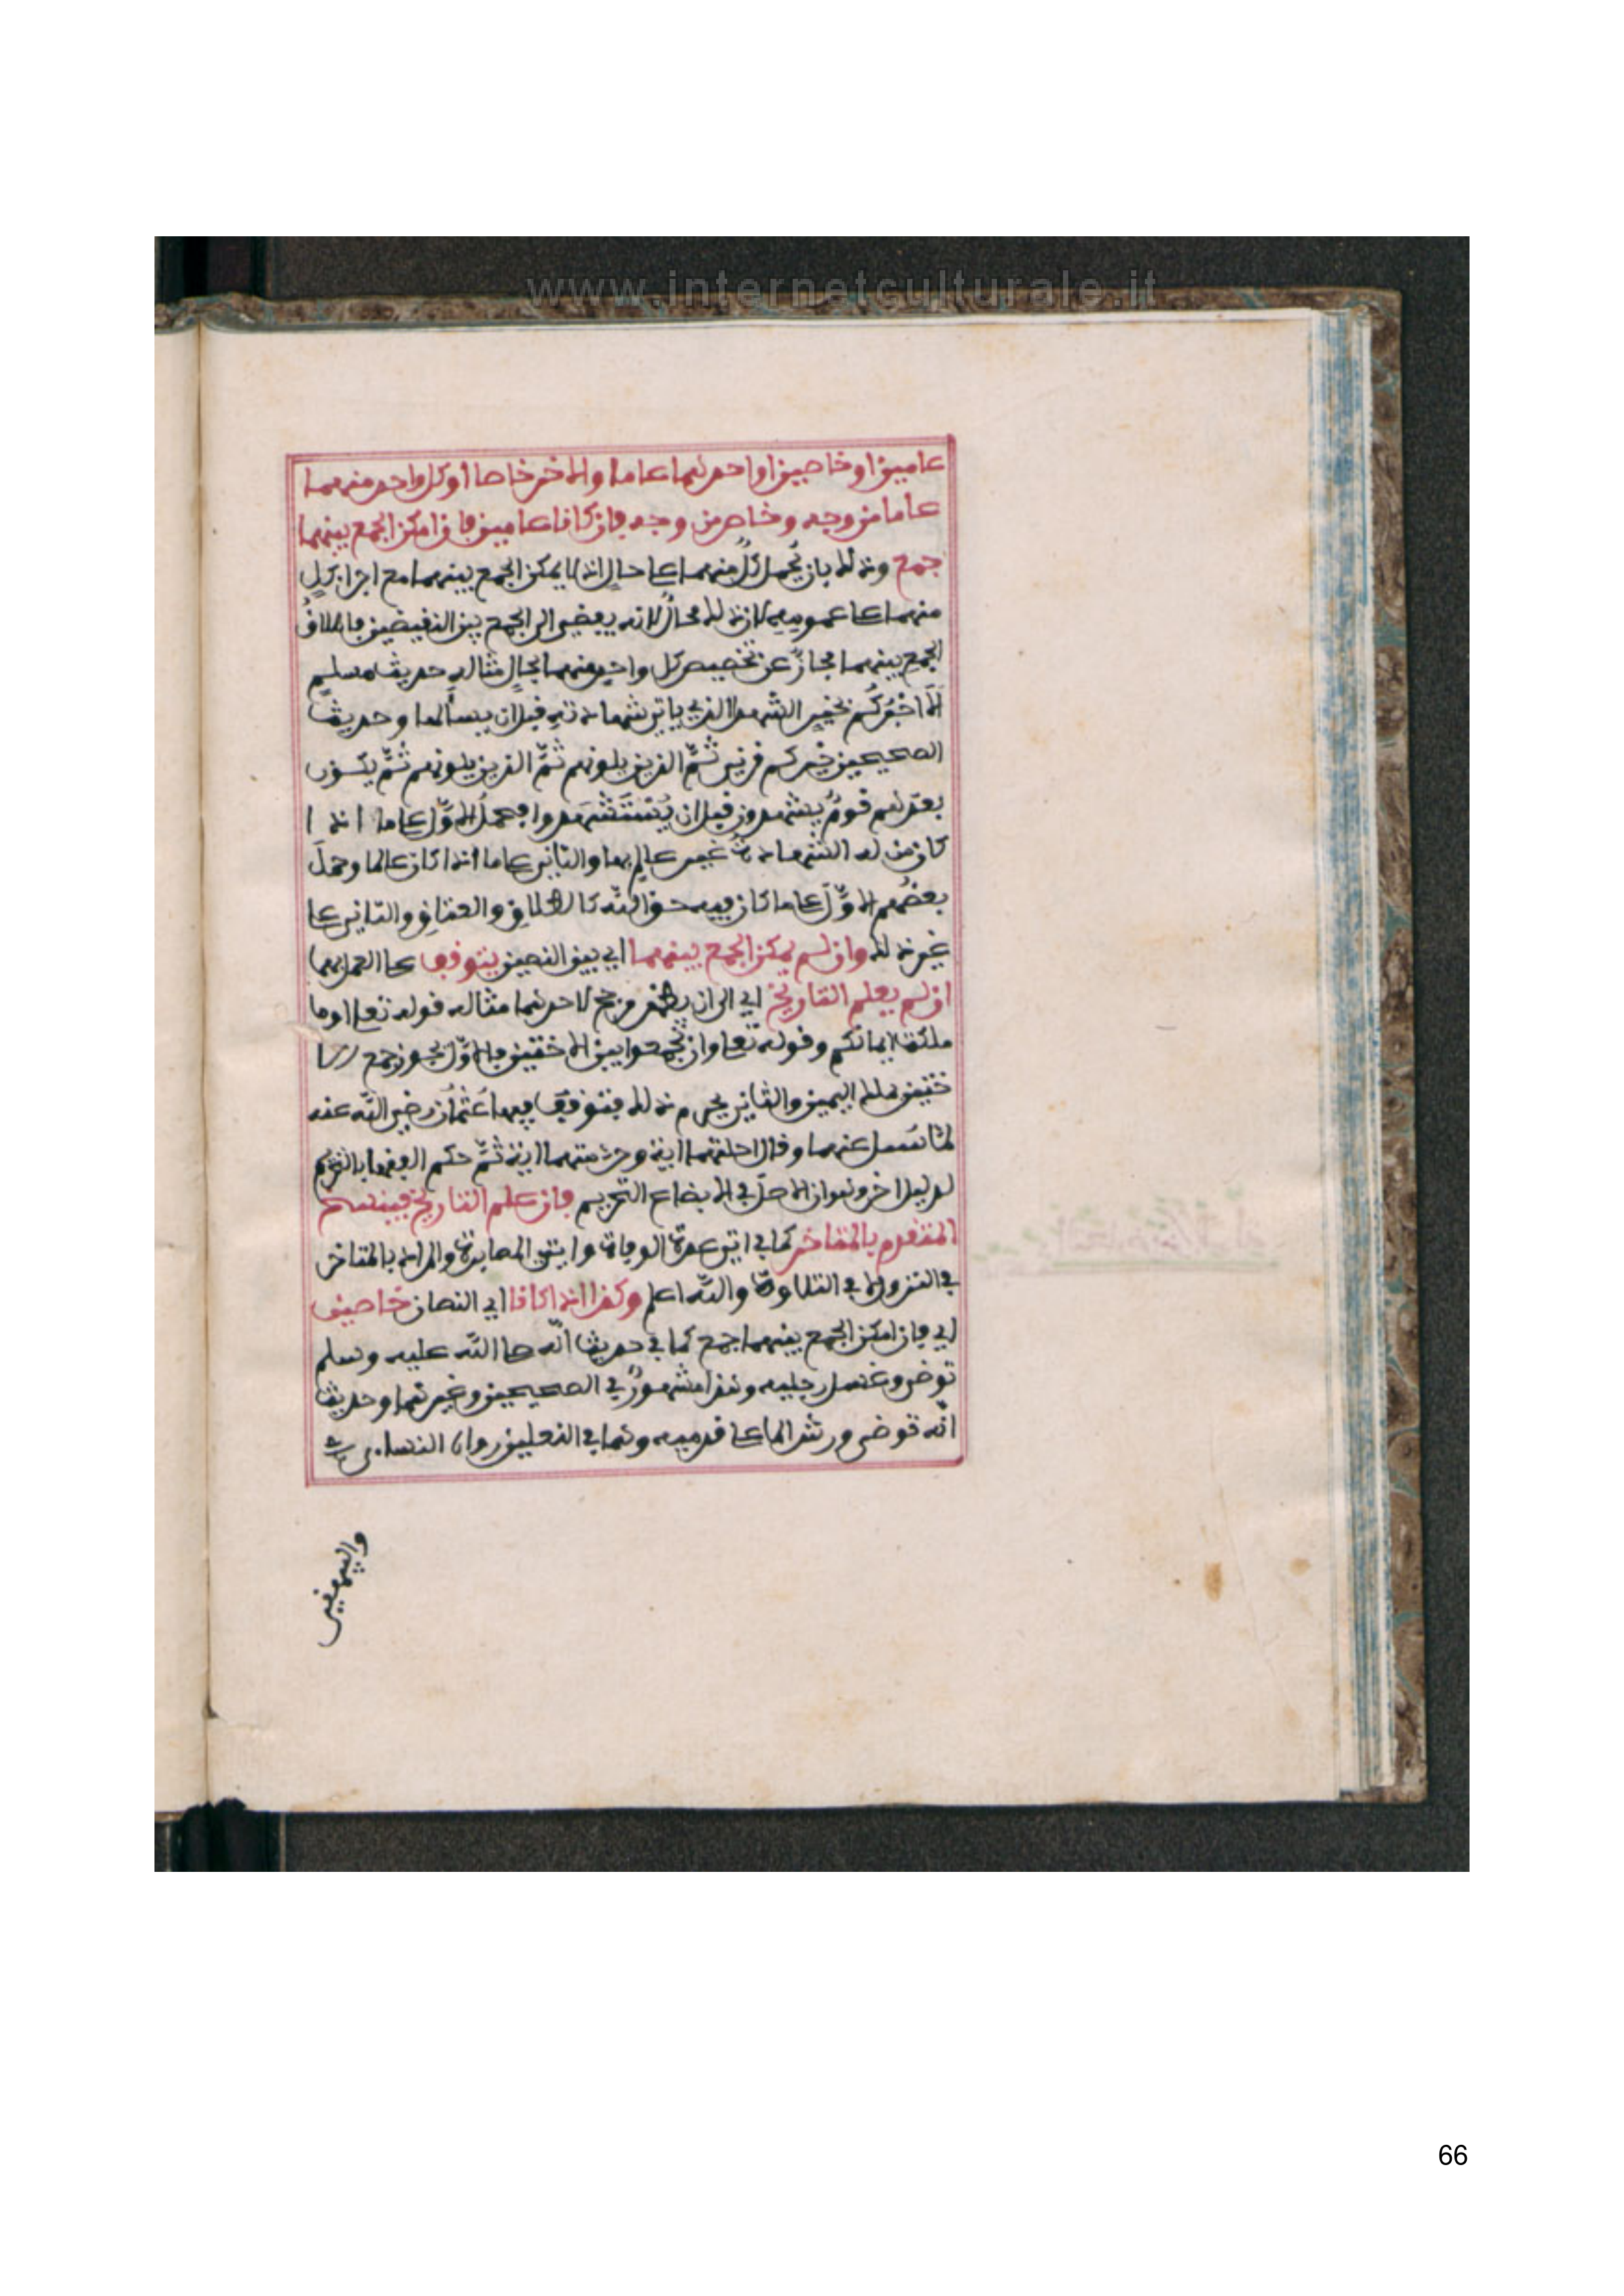 www.internetculturale.it
عامين او خاصين او احدهما عاما والاخر خاصا او كل واحد منهما
عاما من وجه وخاص من وجه فان كانا عامين فان امكن الجمع بينهما
جمع وذلك بان يُحمل كلٌّ منهما على حالٍ اذ لا يمكن الجمع بينهما مع اجراء كلٍ
منهما على عمومه لان ذلك محالٌ لانه يفضي الى الجمع بين النقيضين فاطلاقُ
الجمع بينهما مجازٌ عن تخصيص كل واحدٍ منهما بحالٍ مثاله حديث مسلمٍ
الَا اخْبُركُم بخيرِ الشهداء الذي ياتي بشهادتهِ قبل ان يسألها وحديث
الصحيحين خيركم قرني ثُمَّ الذين يلونهم ثُمَّ الذين يلونهم ثُمَّ يكون
بعدهم قومٌ يشهدون قبل ان يُسْتَشْهَدوا فحملُ الاوّل على ما اذا
كان من له الشهادةُ غيرَ عالمٍ بها والثاني على ما اذا كان عالما وحملَ
بعضُهم الاوّلَ على ما كان فيه حق الله كالطلاق والعتاق والثاني على
غير ذلك وان لم يمكن الجمع بينهما اي بين النصين يتوقف على العمل بهما
ان لم يعلم التاريخ اي الى ان يظهر مرجح لاحدهما مثاله قوله تعلى او ما
ملكت ايمانكم وقوله تعلى وان تجمعوا بين الاختين فالاوّل يجوز جمع الا
ختين بملك اليمين والثاني يحرم ذلك فتوقف فيها عُثْمَان رضي الله عنه
لمّا سُئِل عنهما وقال احلتهما ايةٌ وحرمتهما ايةٌ ثُمَّ حكم الفقهاء بالتحريم
لدليل اخر وهو ان الاصلَ في الابضاع التحريم فان علم التاريخ فينسخ
المتقدم بالمتاخر كما في ايتي عدة الوفاة وايتي المصابرة والمراد بالمتاخر
في النزول لا في التلاوة والله اعلم وكذا اذا كانا اي النصان خاصين
اي فان امكن الجمع بينهما جمع كما في حديث انّه صلى الله عليه وسلم
توضى وغسل رجليه وهذا مشهورٌ في الصحيحين وغيرهما وحديث
انّه توضى ورش الماء على قدميه وهما في النعلين رواه النساءي
والبيهقي
66